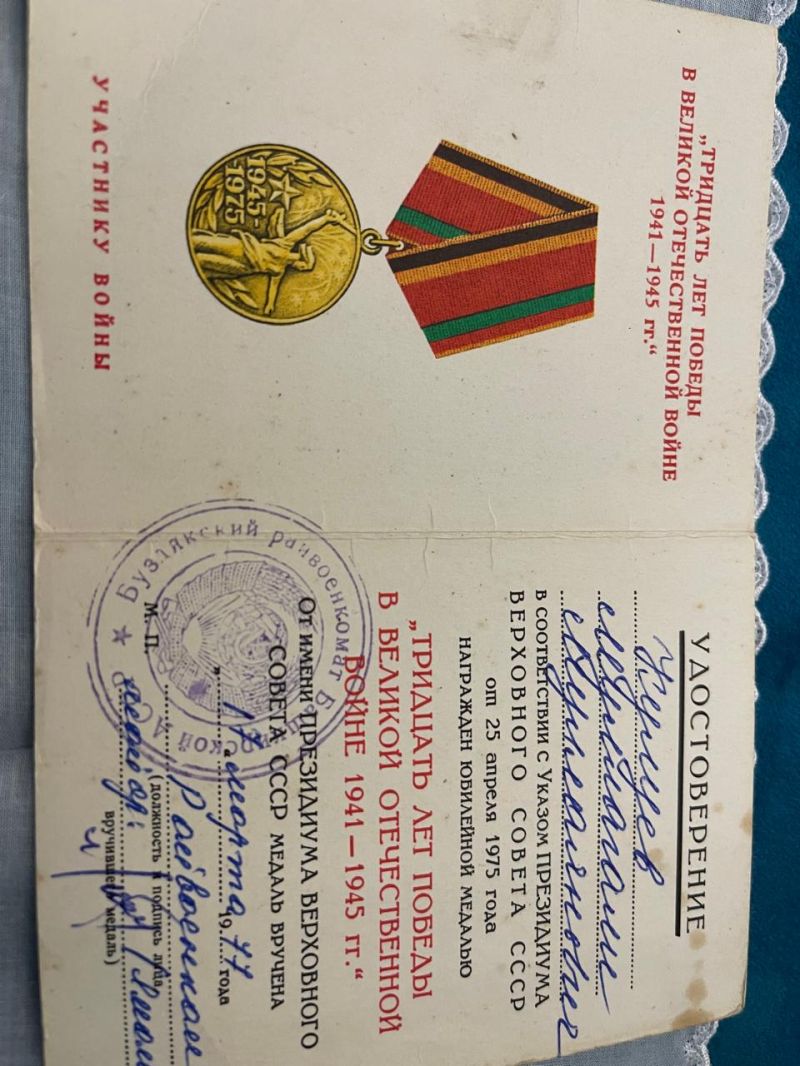 „ТРИДЦАТЬ ЛЕТ ПОБЕДЫ
В ВЕЛИКОЙ ОТЕЧЕСТВЕННОЙ ВОЙНЕ
1941—1945 гг.“
1945-
1975
УЧАСТНИКУ ВОЙНЫ
УДОСТОВЕРЕНИЕ
В СООТВЕТСТВИИ С УКАЗОМ ПРЕЗИДИУМА
ВЕРХОВНОГО СОВЕТА СССР
от 25 апреля 1975 года
НАГРАЖДЕН ЮБИЛЕЙНОЙ МЕДАЛЬЮ
„ТРИДЦАТЬ ЛЕТ ПОБЕДЫ
В ВЕЛИКОЙ ОТЕЧЕСТВЕННОЙ
ВОЙНЕ 1941—1945 гг.“
ОТ ИМЕНИ ПРЕЗИДИУМА ВЕРХОВНОГО
СОВЕТА СССР МЕДАЛЬ ВРУЧЕНА
„17 марта 1977 года
Райвоенком
М. П.
(должность и подпись лица,
майор:
вручившего медаль)
Бузлякский райвоенкомат